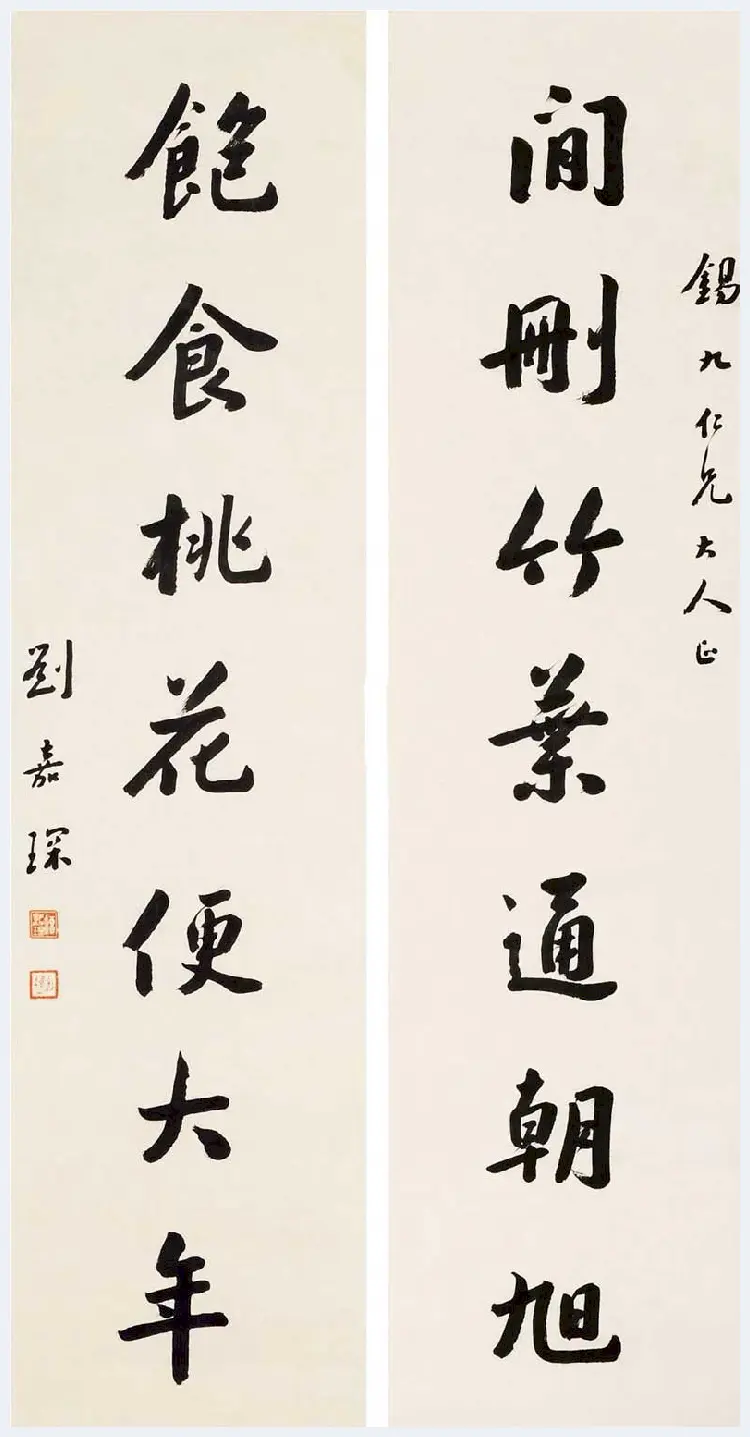 錫九仁兄大人正
閒刪竹葉通朝旭
飽食桃花便大年
劉嘉琛